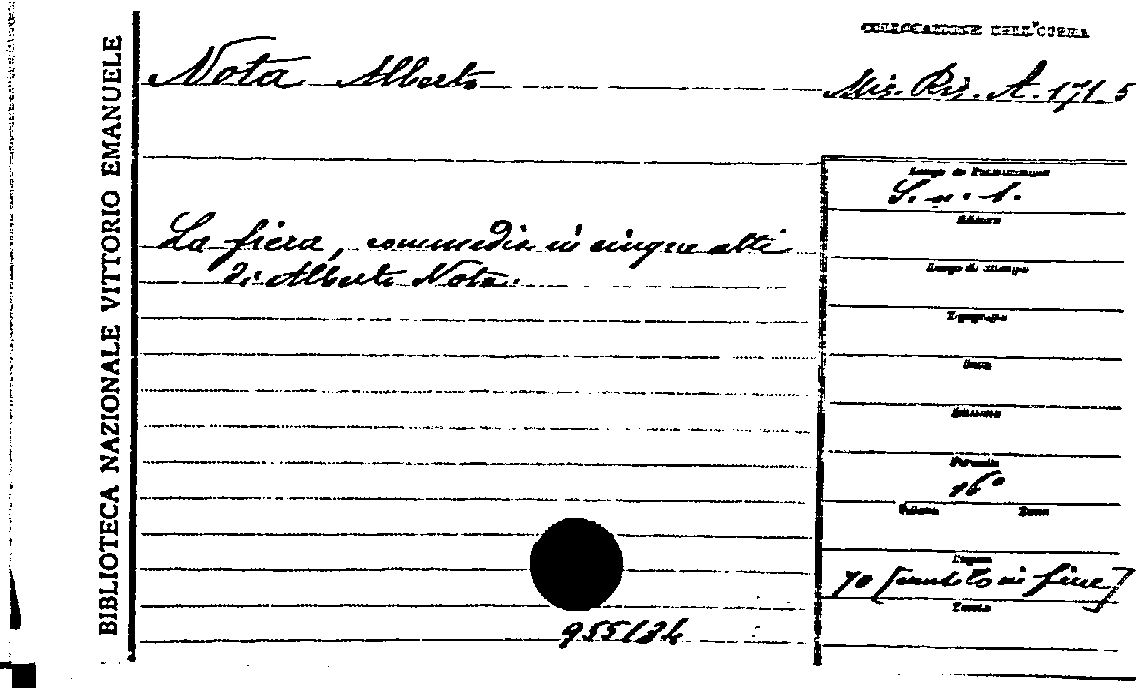 BIBLIOTECA NAZIONALE VITTORIO EMANUELE
COLLOCAZIONE DELL'OPERA
Nota Alberto
Mis. Ris. A. 171. 5
La fiera, commedia in cinque atti
di Alberto Nota.
Luogo di Pubblicazione
S. n. t.
Editore
Luogo di stampa
Tipografo
Data
Edizione
Formato
16°
Volumi Tomo
Pagine
70 [mutilo in fine]
Tavole